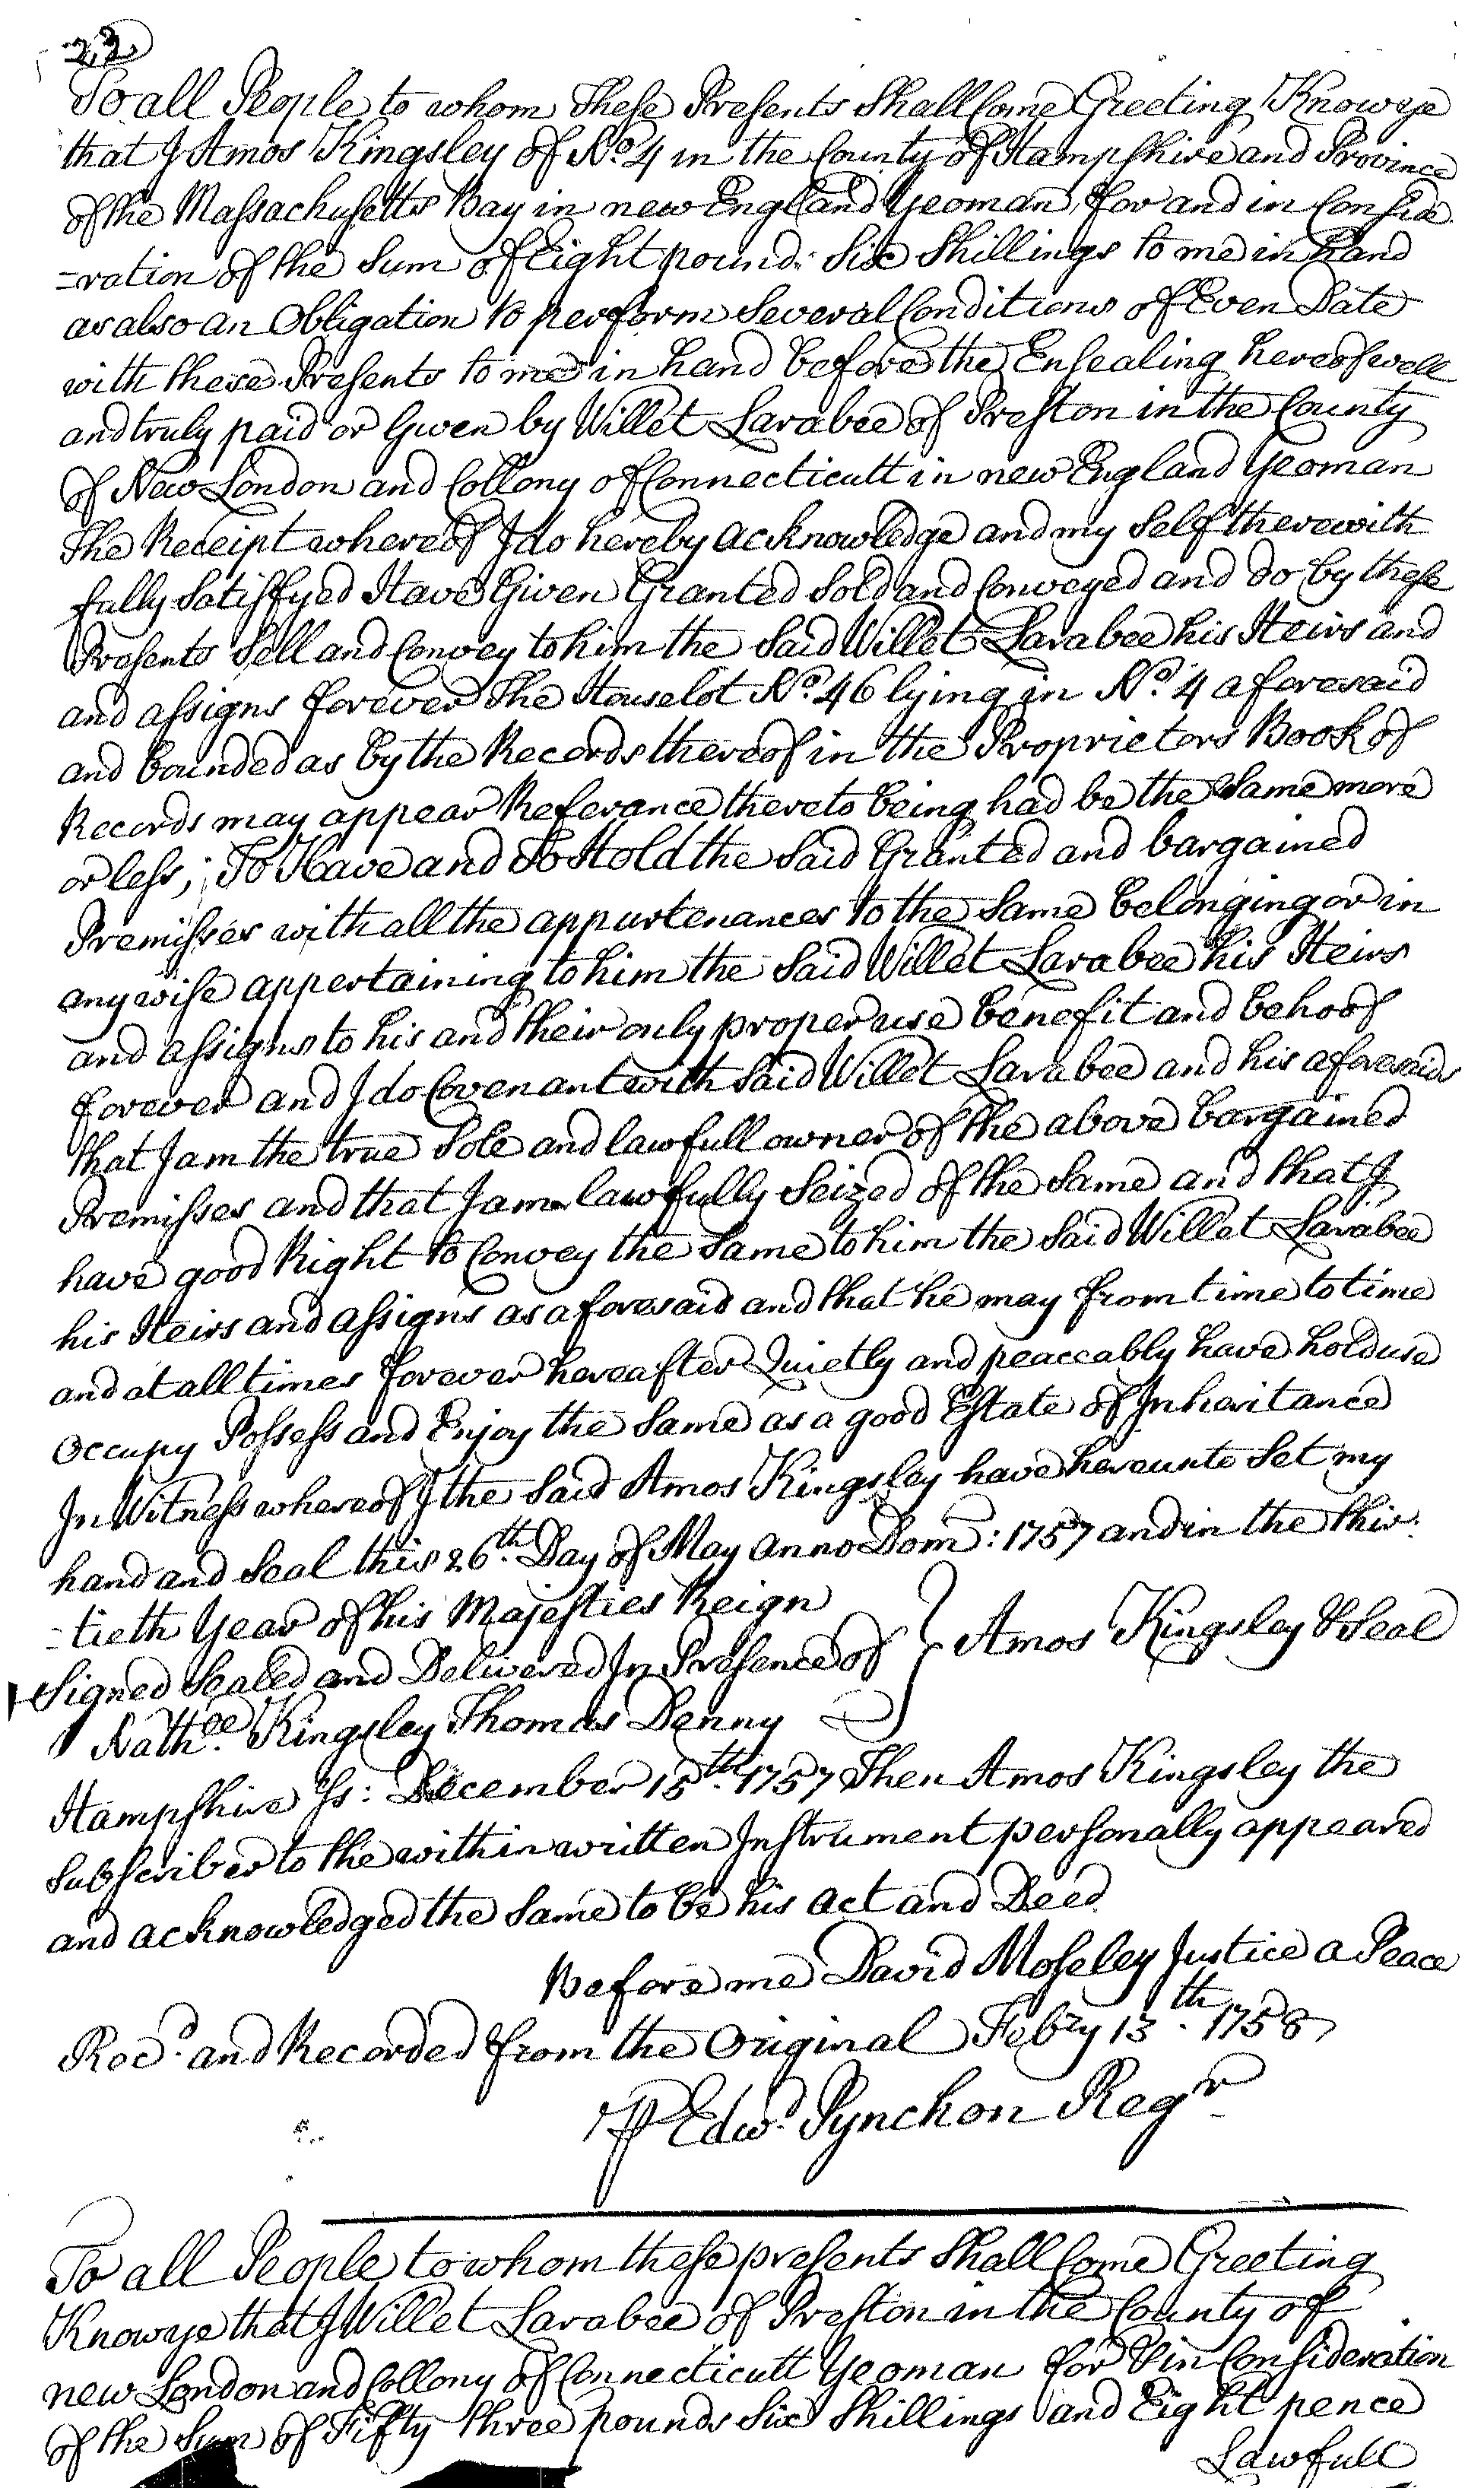 22
To all People to whom These Presents Shall Come Greeting Know ye
that I Amos Kingsley of No. 4 in the County of Hampshire and Province
of the Massachusetts Bay in new England Yeoman, for and in Conside
=ration of the Sum of Eight pound: Six Shillings to me in hand
as also an Obligation to perform Several Conditions of Even Date
with these Presents to me in hand before the Ensealing hereof well
and truly paid or Given by Willet Larabee of Preston in the County
of New London and Collony of Connecticutt in new England Yeoman
The Receipt whereof I do hereby acknowledge and my Self therewith
fully Satisfyed Have Given Granted Sold and Conveyed and do by these
Presents Sell and Convey to him the Said Willet Larabee his Heirs and
and assigns forever The Houselot No. 46 lying in No. 4 aforesaid
and bounded as by the Records thereof in the Proprietors Book of
Records may appear Referance thereto being had be the Same more
or less; To Have and To Hold the Said Granted and bargained
Premisses with all the appurtenances to the Same belonging or in
any wise appertaining to him the Said Willet Larabee his Heirs
and assigns to his and their only proper use benefit and behoof
forever and I do Covenant with Said Willet Larabee and his aforesaids
that I am the true Sole and lawfull owner of the above bargained
Premisses and that I am lawfully Seized of the Same and that I
have good Right to Convey the Same to him the Said Willet Larabee
his Heirs and assigns as aforesaid and that he may from time to time
and at all times forever hereafter Quietly and peaceably have hold use
Occupy Possess and Enjoy the Same as a good Estate of Inharitance
In Witness whereof I the Said Amos Kingsley have hereunto Set my
hand and Seal this 26th. Day of May anno Dom: 1757 and in the thir-
=tieth Year of his Majesties Reign
Signed Sealed and Delivered In Presence of } Amos Kingsley & Seal
Nathll. Kingsley Thomas Denny
Hampshire Ss: December 15th. 1757 Then Amos Kingsley the
Subscriber to the within written Instrument personally appeared
and acknowledged the Same to be his act and Deed
Before me David Moseley Justice a Peace
Recd. and Recorded from the Original Febry 13th. 1758
P Edwd. Pynchon Regr
To all People to whom these presents Shall Come Greeting
Know ye that I Willet Larabee of Preston in the County of
new London and Collony of Connecticutt Yeoman for & in Consideration
of the Sum of Fifty three pounds Six Shillings and Eight pence
Lawfull